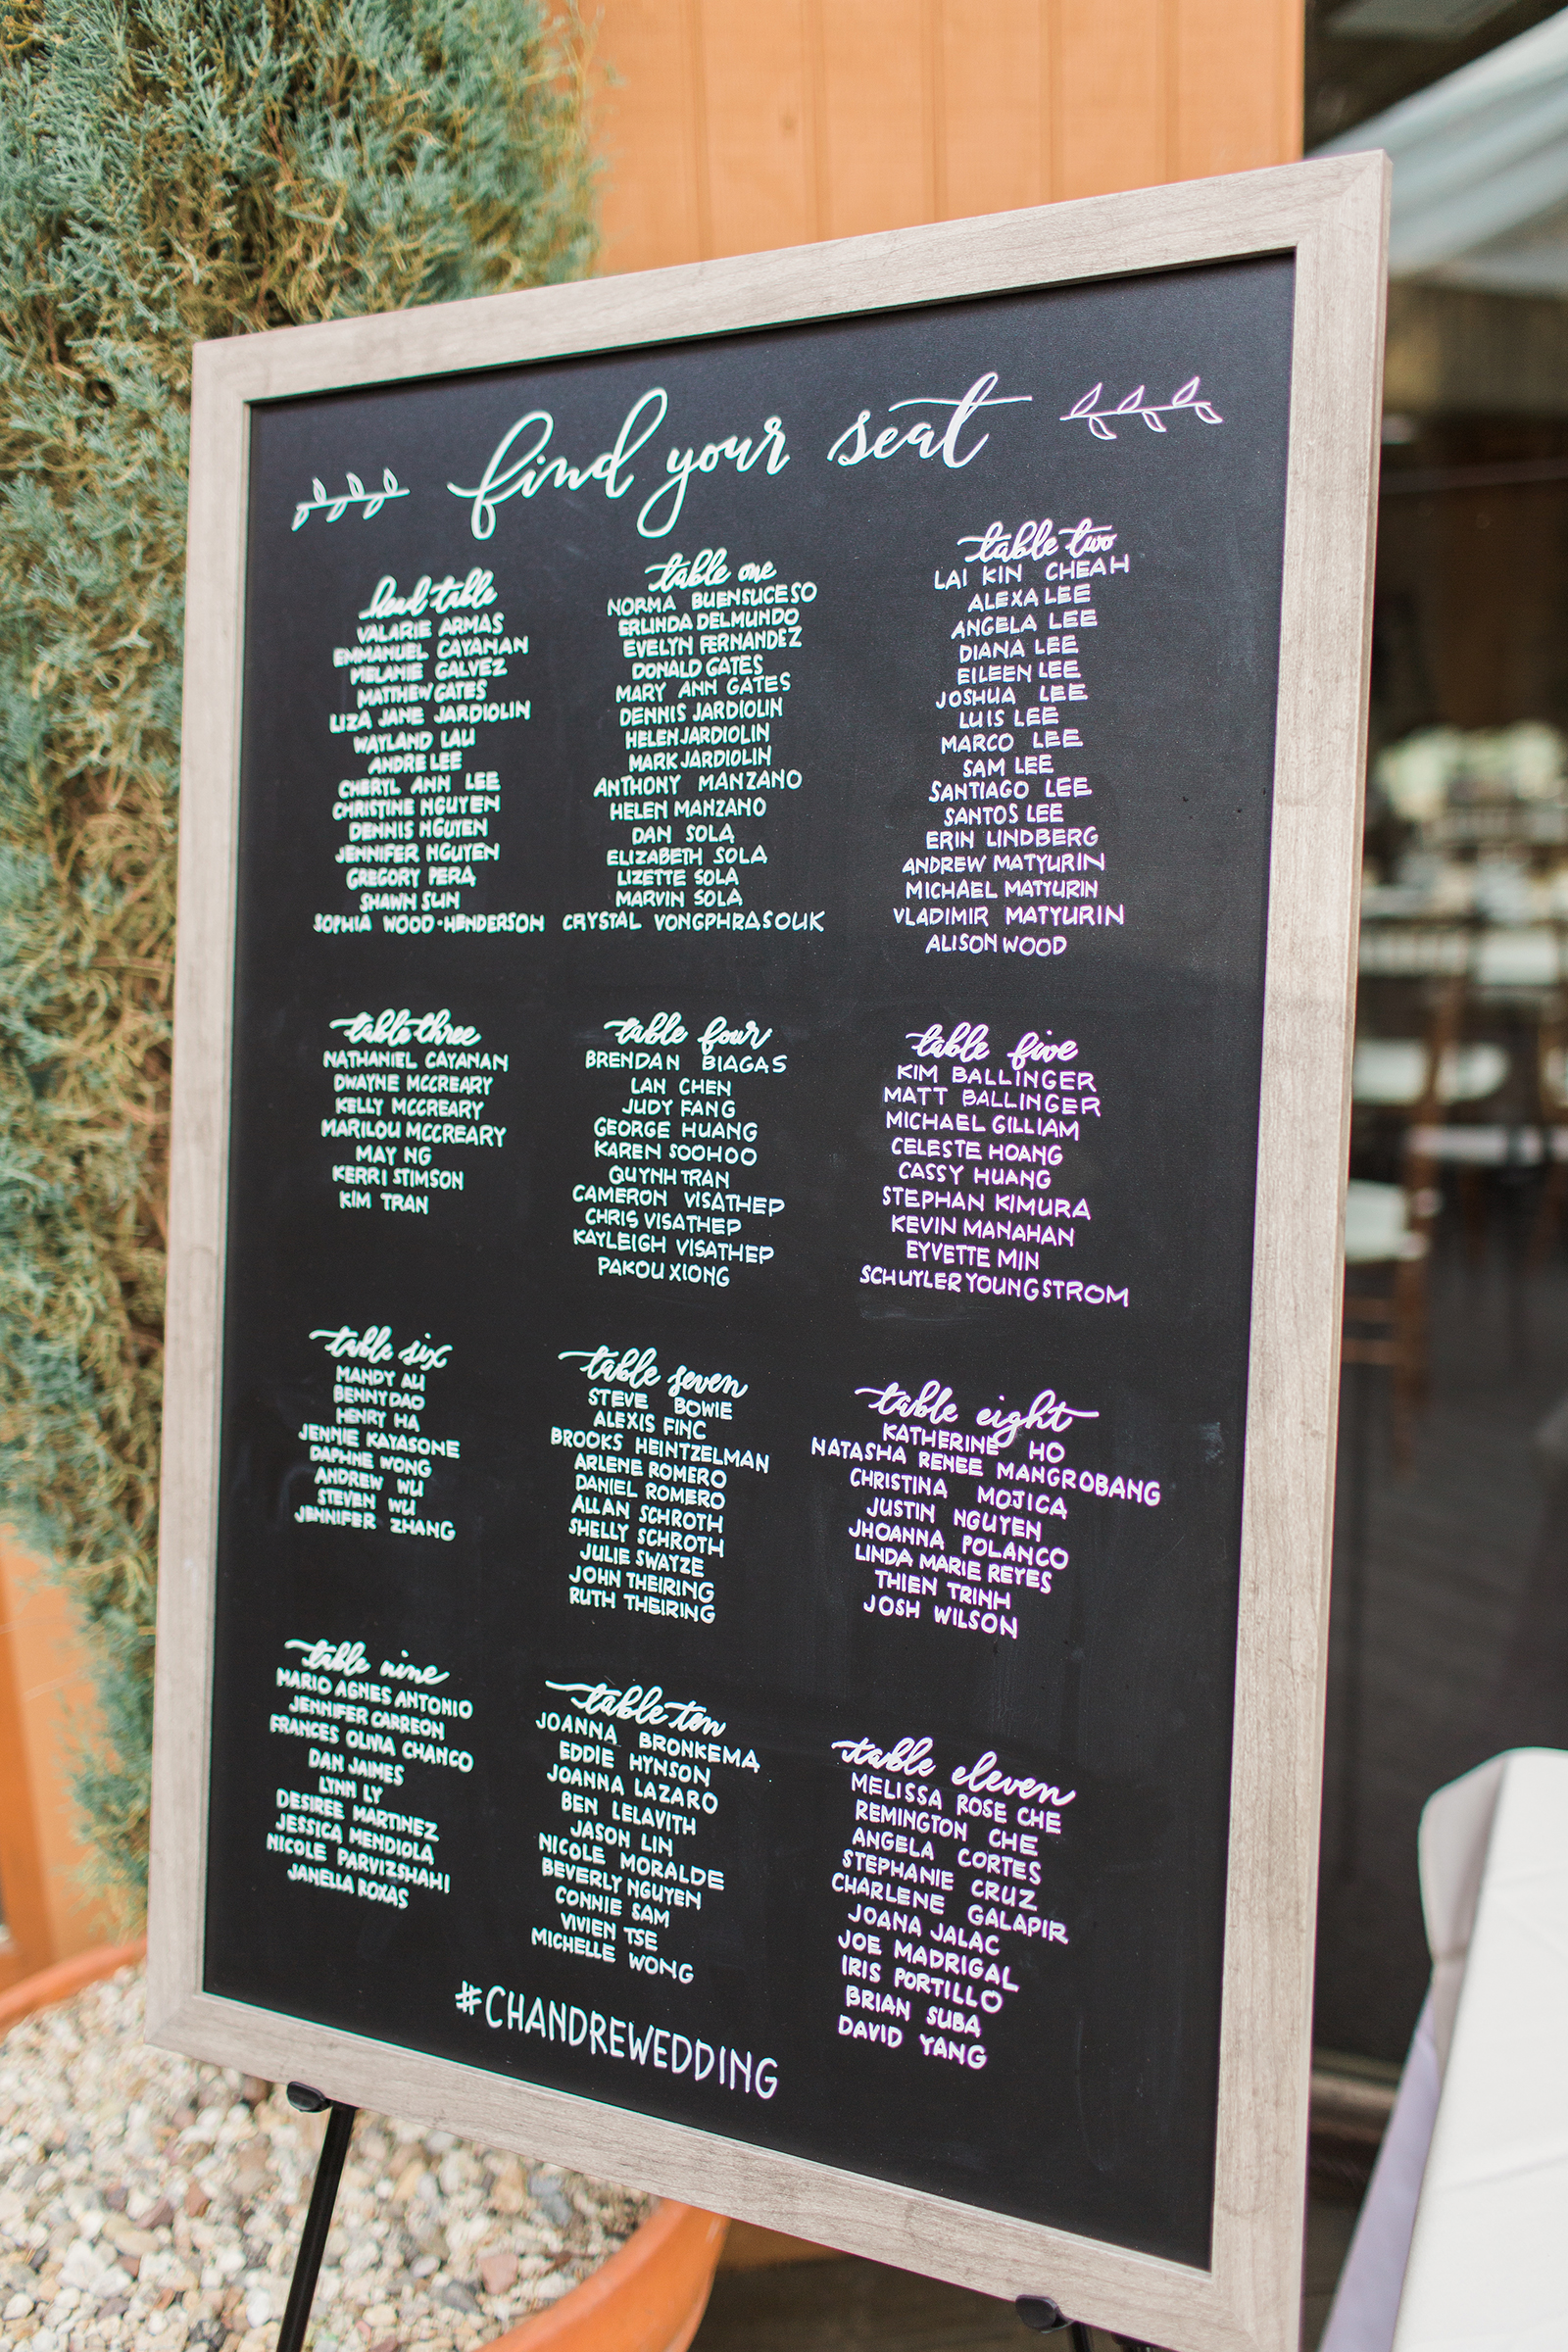 find your seat
head table
VALARIE ARMAS
EMMANUEL CAYANAN
MELANIE GALVEZ
MATTHEW GATES
LIZA JANE JARDIOLIN
WAYLAND LAU
ANDRE LEE
CHERYL ANN LEE
CHRISTINE NGUYEN
DENNIS NGUYEN
JENNIFER NGUYEN
GREGORY PERA
SHAWN SUN
SOPHIA WOOD-HENDERSON
table one
NORMA BUENSUCESO
ERLINDA DELMUNDO
EVELYN FERNANDEZ
DONALD GATES
MARY ANN GATES
DENNIS JARDIOLIN
HELEN JARDIOLIN
MARK JARDIOLIN
ANTHONY MANZANO
HELEN MANZANO
DAN SOLA
ELIZABETH SOLA
LIZETTE SOLA
MARVIN SOLA
CRYSTAL VONGPHRASOUK
table two
LAI KIN CHEAH
ALEXA LEE
ANGELA LEE
DIANA LEE
EILEEN LEE
JOSHUA LEE
LUIS LEE
MARCO LEE
SAM LEE
SANTIAGO LEE
SANTOS LEE
ERIN LINDBERG
ANDREW MATYURIN
MICHAEL MATYURIN
VLADIMIR MATYURIN
ALISON WOOD
table three
NATHANIEL CAYANAN
DWAYNE MCCREARY
KELLY MCCREARY
MARILOU MCCREARY
MAY NG
KERRI STIMSON
KIM TRAN
table four
BRENDAN BIAGAS
LAN CHEN
JUDY FANG
GEORGE HUANG
KAREN SOOHOO
QUYNH TRAN
CAMERON VISATHEP
CHRIS VISATHEP
KAYLEIGH VISATHEP
PAKOU XIONG
table five
KIM BALLINGER
MATT BALLINGER
MICHAEL GILLIAM
CELESTE HOANG
CASSY HUANG
STEPHAN KIMURA
KEVIN MANAHAN
EYVETTE MIN
SCHUYLER YOUNGSTROM
table six
MANDY AU
BENNY DAO
HENRY HA
JENNIE KAYASONE
DAPHNE WONG
ANDREW WU
STEVEN WU
JENNIFER ZHANG
table seven
STEVE BOWIE
ALEXIS FINC
BROOKS HEINTZELMAN
ARLENE ROMERO
DANIEL ROMERO
ALLAN SCHROTH
SHELLY SCHROTH
JULIE SWAYZE
JOHN THEIRING
RUTH THEIRING
table eight
KATHERINE HO
NATASHA RENEE MANGROBANG
CHRISTINA MOJICA
JUSTIN NGUYEN
JHOANNA POLANCO
LINDA MARIE REYES
THIEN TRINH
JOSH WILSON
table nine
MARIO AGNES ANTONIO
JENNIFER CARREON
FRANCES OLIVIA CHANCO
DAN JAIMES
LYNN LY
DESIREE MARTINEZ
JESSICA MENDIOLA
NICOLE PARVIZSHAHI
JANELLA ROXAS
table ten
JOANNA BRONKEMA
EDDIE HYNSON
JOANNA LAZARO
BEN LELAVITH
JASON LIN
NICOLE MORALDE
BEVERLY NGUYEN
CONNIE SAM
VIVIEN TSE
MICHELLE WONG
table eleven
MELISSA ROSE CHE
REMINGTON CHE
ANGELA CORTES
STEPHANIE CRUZ
CHARLENE GALAPIR
JOANA JALAC
JOE MADRIGAL
IRIS PORTILLO
BRIAN SUBA
DAVID YANG
#CHANDREWEDDING